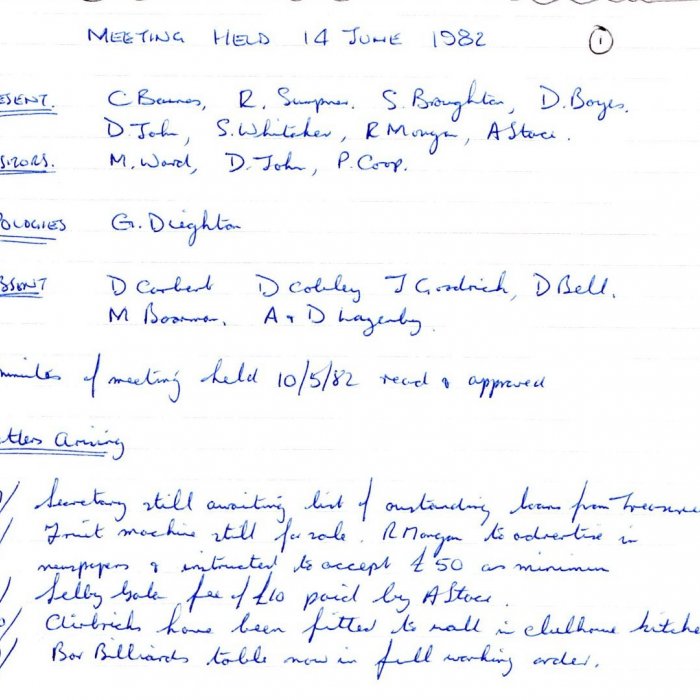 MEETING HELD 14 JUNE 1982 1
ESENT. C Barnes, R. Sumpner. S. Broughton, D. Boyes.
D. John, S. Whitaker, R Morgan, A Stace.
SITORS. M. Ward, D. John, P. Coop.
POLOGIES G. Dieghton
BSENT D Corbert D Cobley J Goodrich, D Bell.
M Boorman. A & D Lazenby.
minutes of meeting held 10/5/82 read & approved
tters Arising
/ Secretary still awaiting list of oustanding loans from Treasure
/ Fruit machine still for sale. R Morgan to advertise in
newspapers & instructed to accept £50 as minimum
/ Selby Gala fee of £10 paid by A Stace.
/ Airbricks have been fitted to wall in clubhouse kitche
/ Bar Billiards table now in full working order.